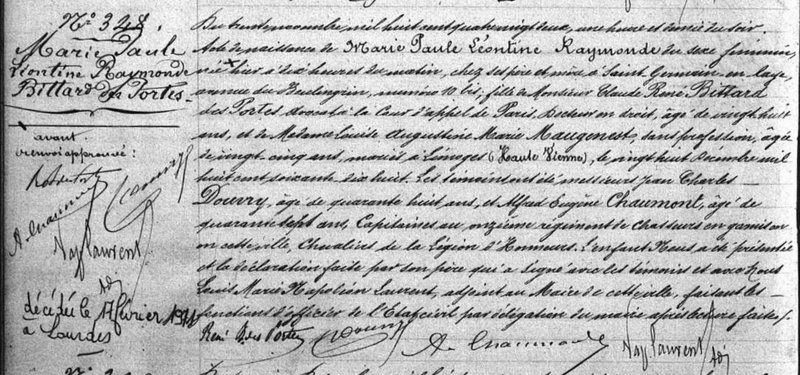 N° 348
Marie Paule
Léontine Raymonde
Bittard des Portes
avant
renvoi approuvé :
R. des Portes
A. Chaumont
Nap Laurent
Adj
décédée le 17 février
à Lourdes
Du trente novembre, mil huit cent quatre vingt deux, une heure et demie du soir
Acte de naissance de Marie Paule Léontine Raymonde du sexe féminin,
née hier à dix heures du matin, chez ses père et mère à Saint Germain en laye,
avenue du Boulingrin, numéro 10 bis ; fille de Monsieur Claude René Bittard
des Portes avocat à la Cour d'appel de Paris, Docteur en droit, âgé de vingt huit
ans, et de Madame Louise Augustine Marie Maugenest, sans profession, âgée
de vingt cinq ans, mariés à Limoges (Haute Vienne), le vingt huit Décembre mil
huit cent soixante dix huit. Les témoins ont été, messieurs Jean Charles
Douvry, âgé de quarante huit ans, et Alfred Eugène Chaumont, âgé de
quarante sept ans, Capitaines au onzième régiment de chasseurs en garnison
en cette ville, Chevaliers de la Légion d'Honneur. L'enfant Nous a été présentée
et la déclaration faite par son père qui a signé avec les témoins et avec Nous
Louis Marie Napoléon Laurent, adjoint au Maire de cette ville, faisant les
fonctions d'officier de l'Etat civil par délégation du maire après lecture faite /.
René B. des Portes Douvry
A. Chaumont Nap Laurent
Adj